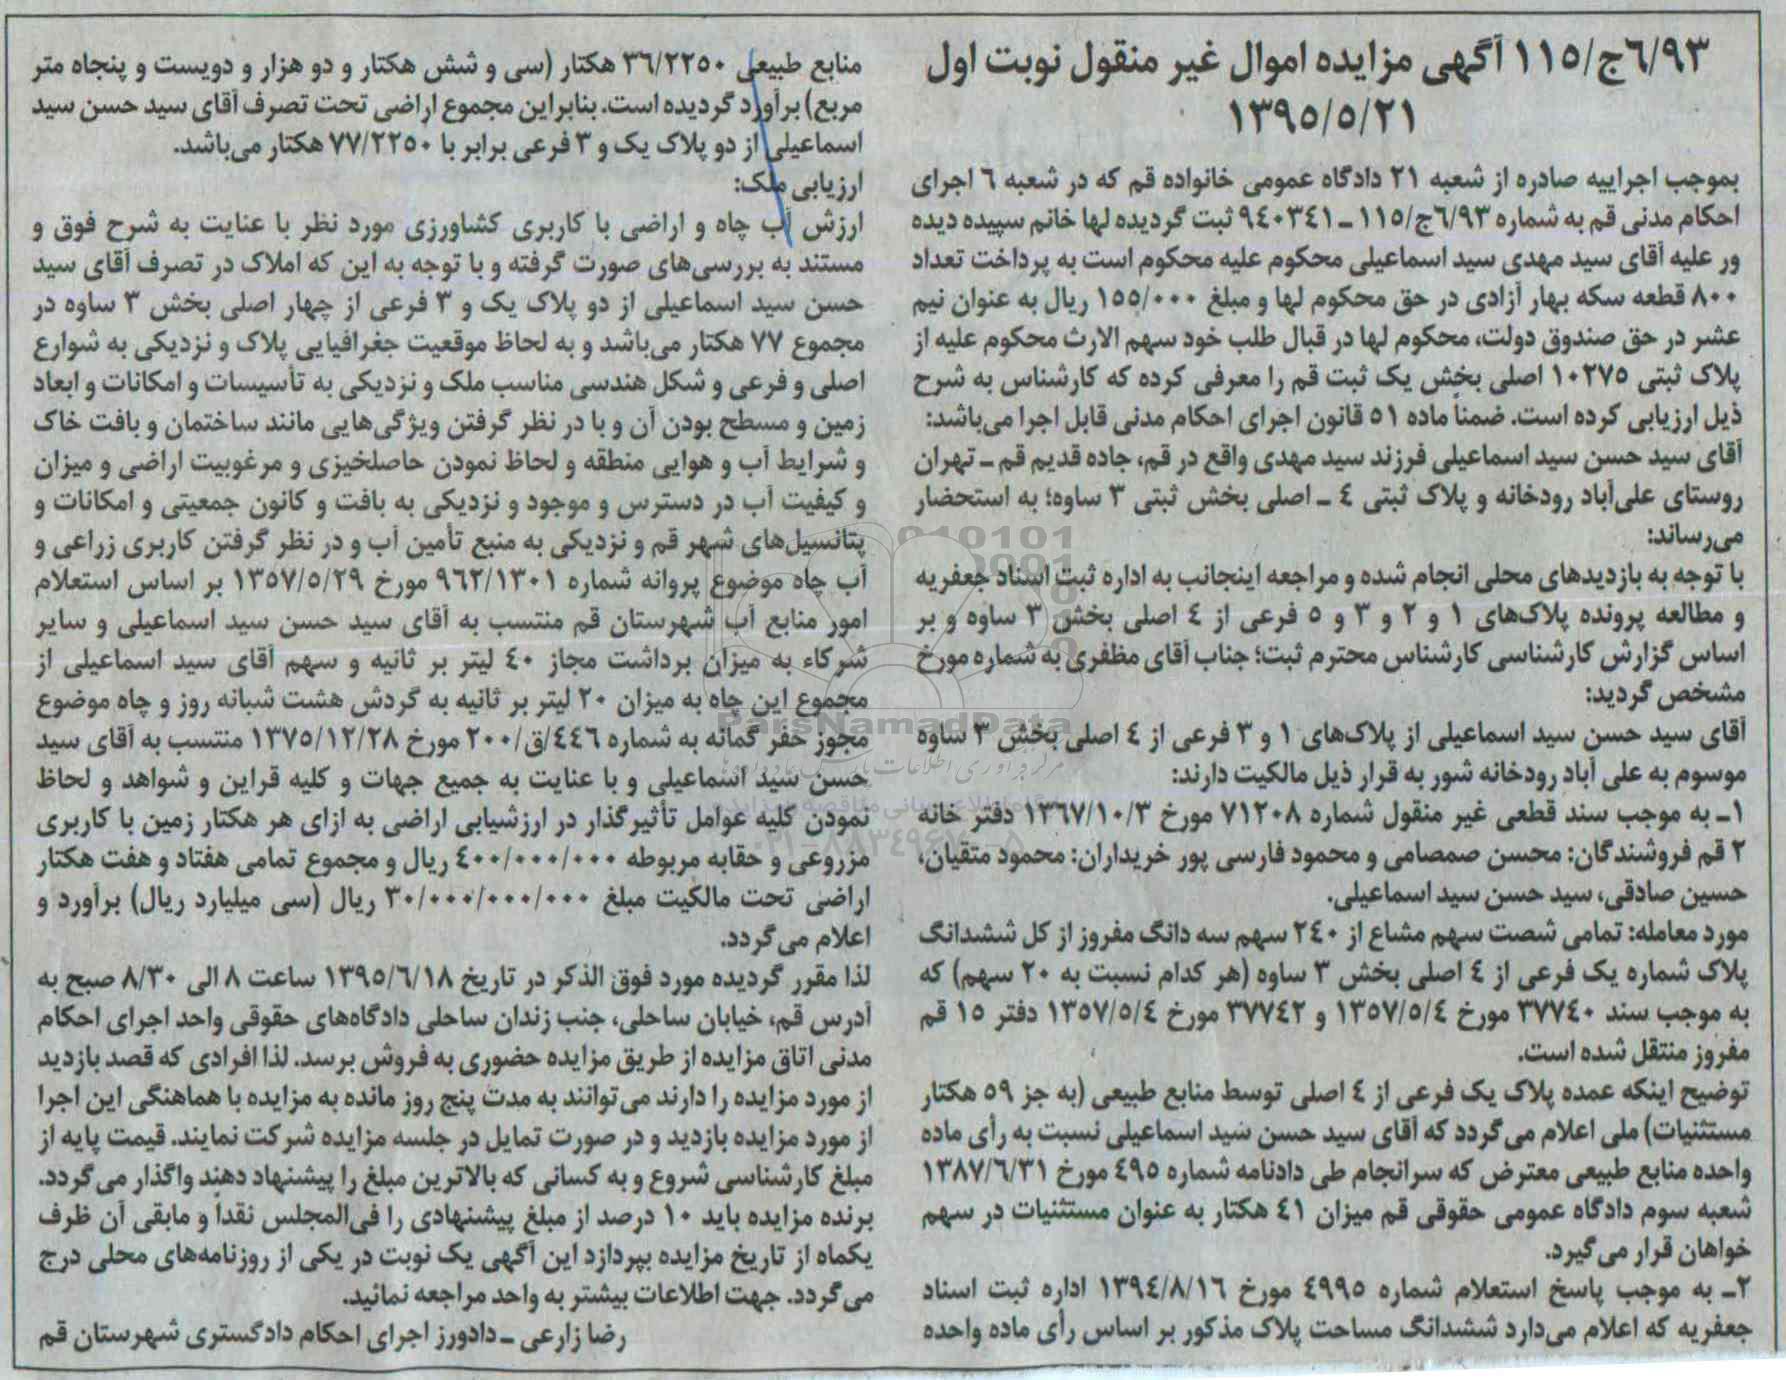 ۱۱۵/ج۶/۹۳ آگهی مزایده اموال غیر منقول نوبت اول
۱۳۹۵/۵/۲۱
بموجب اجراییه صادره از شعبه ۲۱ دادگاه عمومی خانواده قم که در شعبه ۶ اجرای
احکام مدنی قم به شماره ۶/۹۳ج/۱۱۵ـ۹۴۰۳۴۱ ثبت گردیده لها خانم سپیده دیده
ور علیه آقای سید مهدی سید اسماعیلی محکوم علیه محکوم است به پرداخت تعداد
۸۰۰ قطعه سکه بهار آزادی در حق محکوم لها و مبلغ ۱۵۵/۰۰۰ ریال به عنوان نیم
عشر در حق صندوق دولت، محکوم لها در قبال طلب خود سهم الارث محکوم علیه از
پلاک ثبتی ۱۰۲۷۵ اصلی بخش یک ثبت قم را معرفی کرده که کارشناس به شرح
ذیل ارزیابی کرده است. ضمناً ماده ۵۱ قانون اجرای احکام مدنی قابل اجرا می‌باشد:
آقای سید حسن سید اسماعیلی فرزند سید مهدی واقع در قم، جاده قدیم قم ـ تهران
روستای علی‌آباد رودخانه و پلاک ثبتی ۴ ـ اصلی بخش ثبتی ۳ ساوه؛ به استحضار
می‌رساند:
با توجه به بازدیدهای محلی انجام شده و مراجعه اینجانب به اداره ثبت اسناد جعفریه
و مطالعه پرونده پلاک‌های ۱ و ۲ و ۳ و ۵ فرعی از ۴ اصلی بخش ۳ ساوه و بر
اساس گزارش کارشناسی کارشناس محترم ثبت؛ جناب آقای مظفری به شماره مورخ
مشخص گردید:
آقای سید حسن سید اسماعیلی از پلاک‌های ۱ و ۳ فرعی از ۴ اصلی بخش ۳ ساوه
موسوم به علی آباد رودخانه شور به قرار ذیل مالکیت دارند:
۱ـ به موجب سند قطعی غیر منقول شماره ۷۱۲۰۸ مورخ ۱۳۶۷/۱۰/۳ دفتر خانه
۲ قم فروشندگان: محسن صمصامی و محمود فارسی پور خریداران: محمود متقیان،
حسین صادقی، سید حسن سید اسماعیلی.
مورد معامله: تمامی شصت سهم مشاع از ۲۴۰ سهم سه دانگ مفروز از کل ششدانگ
پلاک شماره یک فرعی از ۴ اصلی بخش ۳ ساوه (هر کدام نسبت به ۲۰ سهم) که
به موجب سند ۳۷۷۴۰ مورخ ۱۳۵۷/۵/۴ و ۳۷۷۴۲ مورخ ۱۳۵۷/۵/۴ دفتر ۱۵ قم
مفروز منتقل شده است.
توضیح اینکه عمده پلاک یک فرعی از ۴ اصلی توسط منابع طبیعی (به جز ۵۹ هکتار
مستثنیات) ملی اعلام می‌گردد که آقای سید حسن سید اسماعیلی نسبت به رأی ماده
واحده منابع طبیعی معترض که سرانجام طی دادنامه شماره ۴۹۵ مورخ ۱۳۸۷/۶/۳۱
شعبه سوم دادگاه عمومی حقوقی قم میزان ۴۱ هکتار به عنوان مستثنیات در سهم
خواهان قرار می‌گیرد.
۲ـ به موجب پاسخ استعلام شماره ۴۹۹۵ مورخ ۱۳۹۴/۸/۱۶ اداره ثبت اسناد
جعفریه که اعلام می‌دارد ششدانگ مساحت پلاک مذکور بر اساس رأی ماده واحده
منابع طبیعی ۳۶/۲۲۵۰ هکتار (سی و شش هکتار و دو هزار و دویست و پنجاه متر
مربع) برآورد گردیده است. بنابراین مجموع اراضی تحت تصرف آقای سید حسن سید
اسماعیلی از دو پلاک یک و ۳ فرعی برابر با ۷۷/۲۲۵۰ هکتار می‌باشد.
ارزیابی ملک:
ارزش آب چاه و اراضی با کاربری کشاورزی مورد نظر با عنایت به شرح فوق و
مستند به بررسی‌های صورت گرفته و با توجه به این که املاک در تصرف آقای سید
حسن سید اسماعیلی از دو پلاک یک و ۳ فرعی از چهار اصلی بخش ۳ ساوه در
مجموع ۷۷ هکتار می‌باشد و به لحاظ موقعیت جغرافیایی پلاک و نزدیکی به شوارع
اصلی و فرعی و شکل هندسی مناسب ملک و نزدیکی به تأسیسات و امکانات و ابعاد
زمین و مسطح بودن آن و با در نظر گرفتن ویژگی‌هایی مانند ساختمان و بافت خاک
و شرایط آب و هوایی منطقه و لحاظ نمودن حاصلخیزی و مرغوبیت اراضی و میزان
و کیفیت آب در دسترس و موجود و نزدیکی به بافت و کانون جمعیتی و امکانات و
پتانسیل‌های شهر قم و نزدیکی به منبع تأمین آب و در نظر گرفتن کاربری زراعی و
آب چاه موضوع پروانه شماره ۹۶۲/۱۳۰۱ مورخ ۱۳۵۷/۵/۲۹ بر اساس استعلام
امور منابع آب شهرستان قم منتسب به آقای سید حسن سید اسماعیلی و سایر
شرکاء به میزان برداشت مجاز ۴۰ لیتر بر ثانیه و سهم آقای سید اسماعیلی از
مجموع این چاه به میزان ۲۰ لیتر بر ثانیه به گردش هشت شبانه روز و چاه موضوع
مجوز حفر گمانه به شماره ۴۴۶/ق/۲۰۰ مورخ ۱۳۷۵/۱۲/۲۸ منتسب به آقای سید
حسن سید اسماعیلی و با عنایت به جمیع جهات و کلیه قراین و شواهد و لحاظ
نمودن کلیه عوامل تأثیرگذار در ارزشیابی اراضی به ازای هر هکتار زمین با کاربری
مزروعی و حقابه مربوطه ۴۰۰/۰۰۰/۰۰۰ ریال و مجموع تمامی هفتاد و هفت هکتار
اراضی تحت مالکیت مبلغ ۳۰/۰۰۰/۰۰۰/۰۰۰ ریال (سی میلیارد ریال) برآورد و
اعلام می‌گردد.
لذا مقرر گردیده مورد فوق الذکر در تاریخ ۱۳۹۵/۶/۱۸ ساعت ۸ الی ۸/۳۰ صبح به
آدرس قم، خیابان ساحلی، جنب زندان ساحلی دادگاه‌های حقوقی واحد اجرای احکام
مدنی اتاق مزایده از طریق مزایده حضوری به فروش برسد. لذا افرادی که قصد بازدید
از مورد مزایده را دارند می‌توانند به مدت پنج روز مانده به مزایده با هماهنگی این اجرا
از مورد مزایده بازدید و در صورت تمایل در جلسه مزایده شرکت نمایند. قیمت پایه از
مبلغ کارشناسی شروع و به کسانی که بالاترین مبلغ را پیشنهاد دهند واگذار می‌گردد.
برنده مزایده باید ۱۰ درصد از مبلغ پیشنهادی را فی‌المجلس نقداً و مابقی آن ظرف
یکماه از تاریخ مزایده بپردازد این آگهی یک نوبت در یکی از روزنامه‌های محلی درج
می‌گردد. جهت اطلاعات بیشتر به واحد مراجعه نمائید.
رضا زارعی ـ دادورز اجرای احکام دادگستری شهرستان قم
ParsNamadData